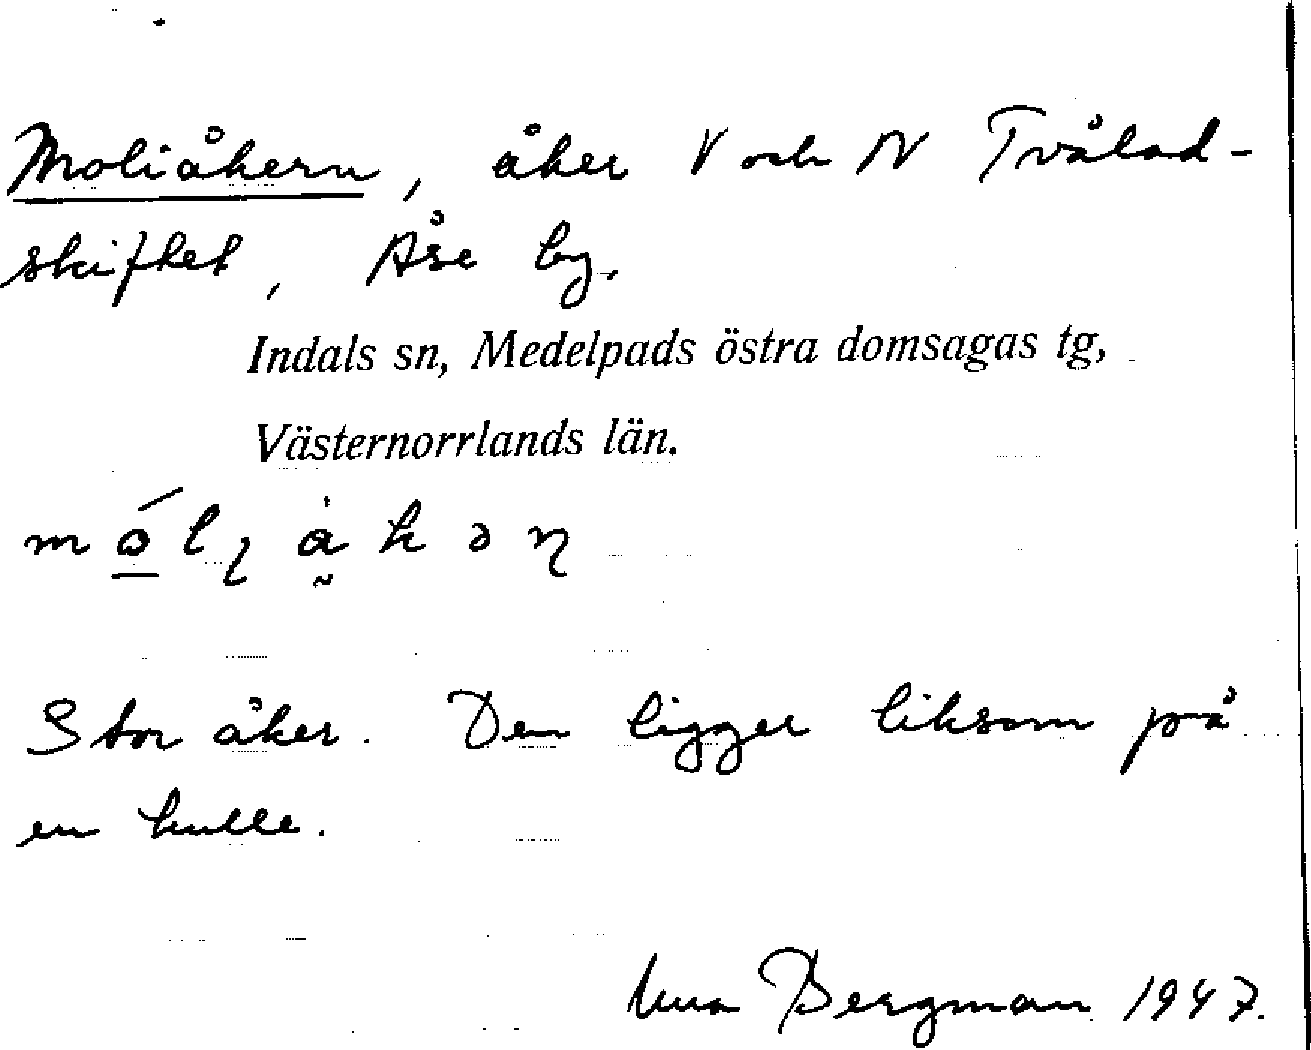 Moliåkern, åker V och N Tvålad-
skiftet, Åse by.
Indals sn, Medelpads östra domsagas tg,
Västernorrlands län.
Stor åker. Den ligger liksom på
en kulle.
Bergman 1947.